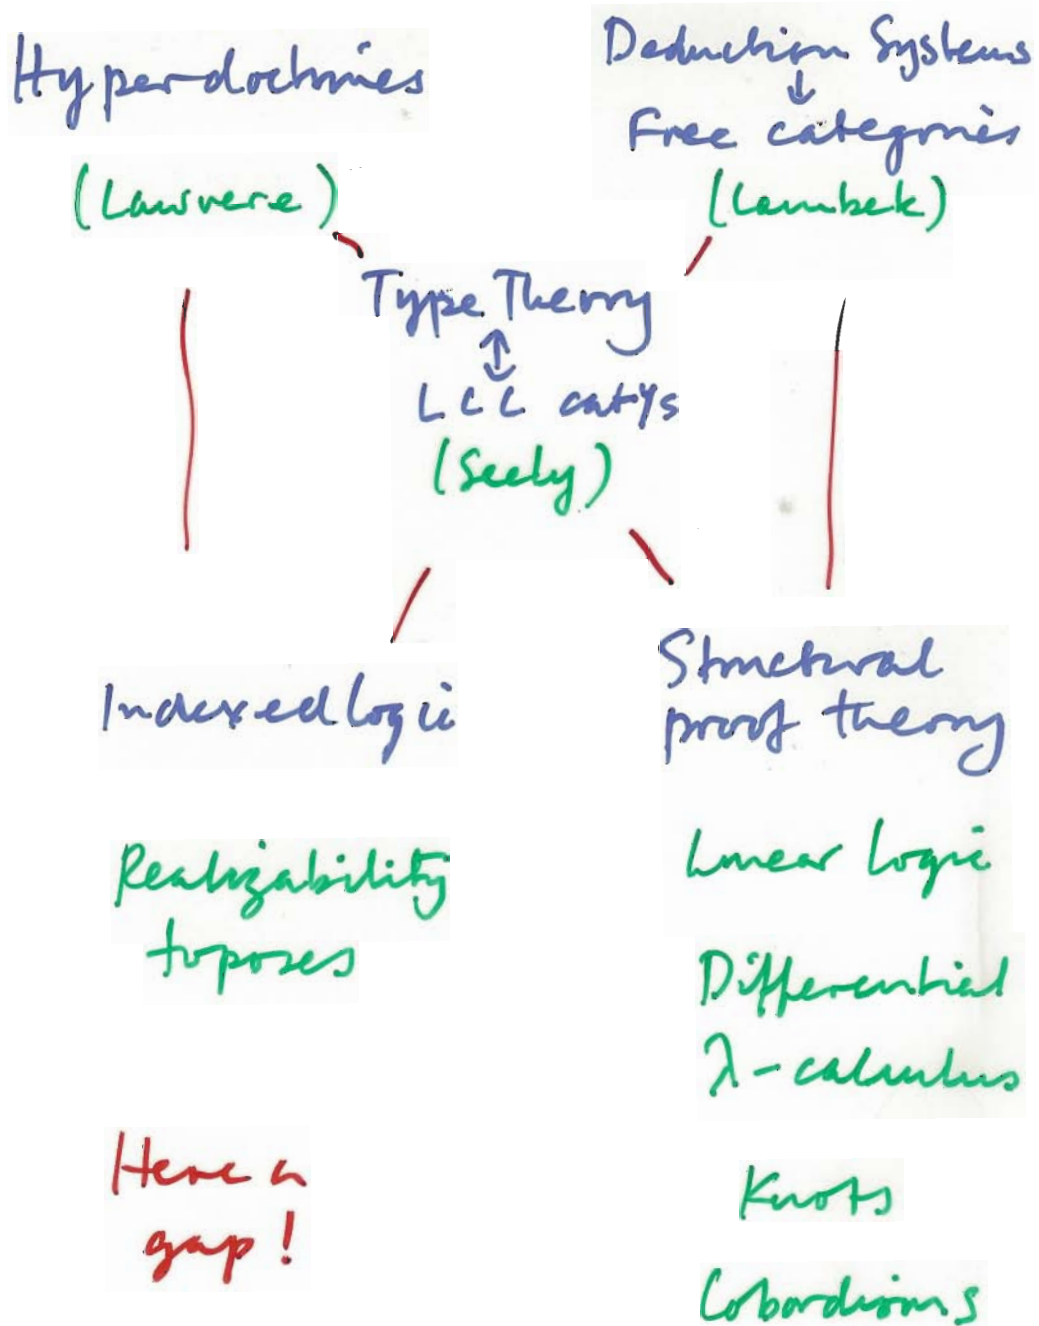 Hyperdoctrines
(Lawvere)
Deduction Systems
↓
Free categories
(Lambek)
Type Theory
↕
LCC cat'ys
(Seely)
Indexed logic
Realizability
toposes
Here a
gap!
Structural
proof theory
Linear logic
Differential
λ-calculus
Knots
Cobordisms